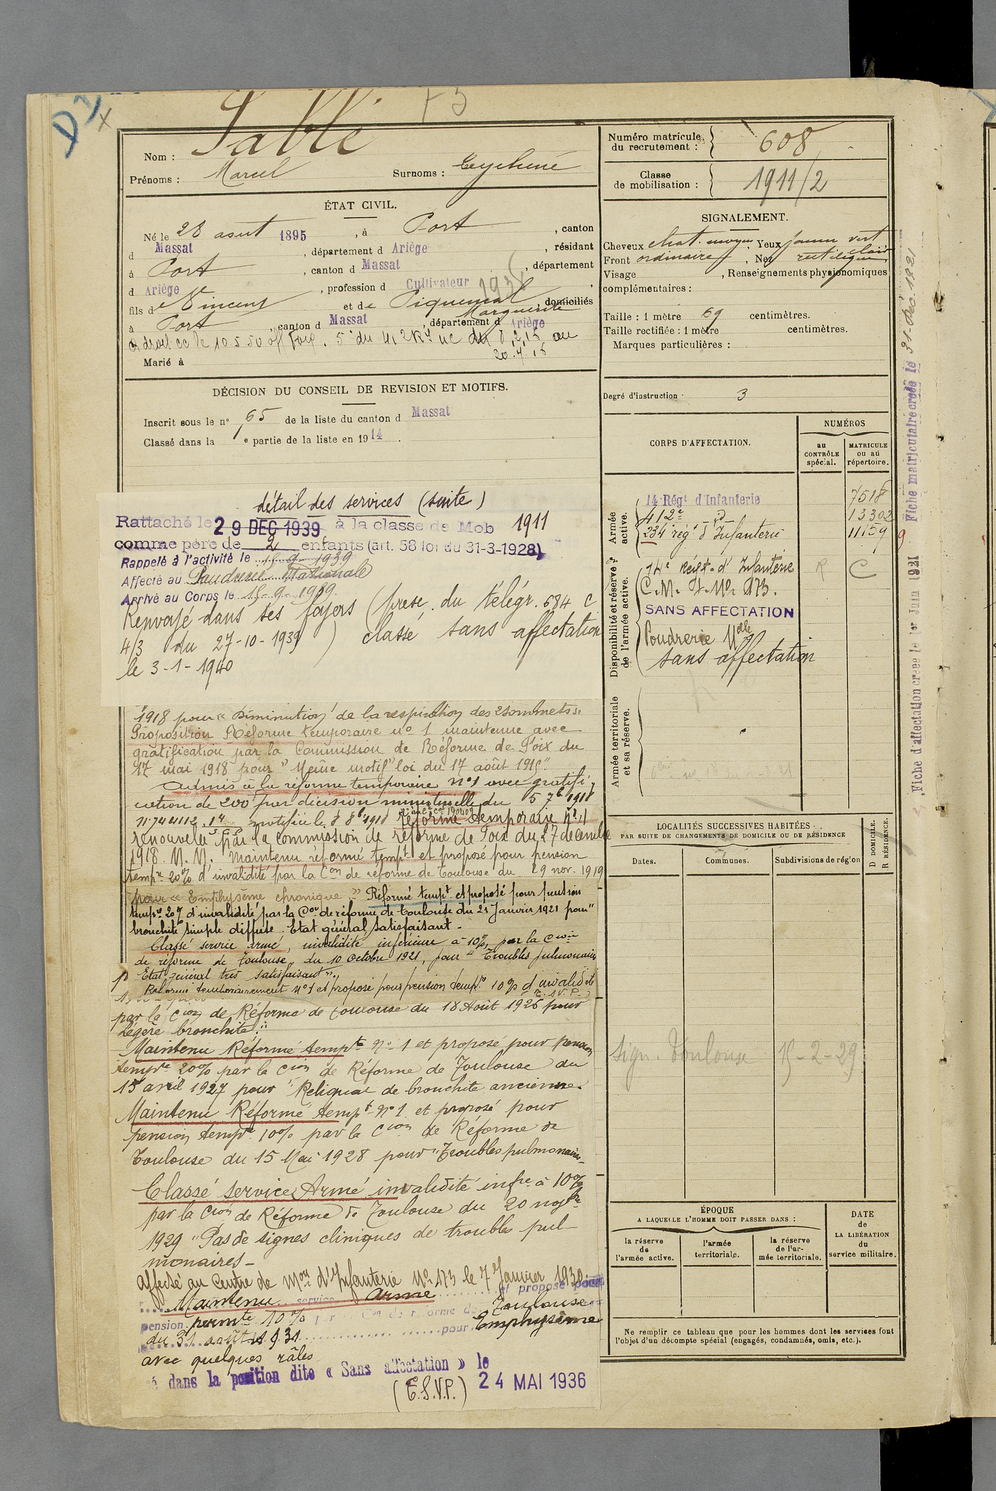 Sablé
Nom :
Prénoms : Marcel Surnoms : Eychené
ÉTAT CIVIL.
Né le 28 août 1895, à Port, canton
d Massat, département d Ariège, résidant
à Port, canton d Massat, département
d Ariège, profession d Cultivateur
fils de Vincent et de Piquemal Marguerite, domiciliés
à Port, canton d Massat, département d Ariège
Marié à
DÉCISION DU CONSEIL DE REVISION ET MOTIFS.
Inscrit sous le n° 65 de la liste du canton d Massat
Classé dans la 1e partie de la liste en 1914.
détail des services (suite)
Rattaché le 29 DEC 1939 à la classe de Mob 1911
comme père de 2 enfants (art. 58 loi du 31-3-1928)
Rappelé à l'activité le 15-9-1939
Affecté au Poudrerie Nationale
Arrivé au Corps le 15-9-1939
Renvoyé dans ses foyers (presc. du télégr. 684 c
4/3 du 27-10-1939) classé sans affectation
le 3-1-1940
1918 pour « Diminution de la respiration des 2 sommets »
Proposition Réforme temporaire n° 1 maintenue avec
gratification par la Commission de Réforme de Foix du
17 mai 1918 pour "Même motif" loi du 17 août 1918"
Admis à la réforme temporaire n°1 avec gratifi-
cation de 200f par décision ministerielle du 5 7bre 1918
notifiée le 8 8bre 1918 Réforme temporaire n°1
renouvelée par la Commission de réforme de Foix du 27 décembre
1918. M. M. Maintenu réformé tempre 1 et proposé pour pension
tempre 20% d'invalidité par la Con de réforme de Toulouse du 29 nov. 1919
pour « Emphysème chronique » Réformé tempt et proposé pour pension
tempre 20% d'invalidité par la Con de réforme de Toulouse du 21 Janvier 1921 pour "
bronchite simple diffuse. Etat général satisfaisant.
Classé service armé, invalidité inférieure à 10%, par la Con
de réforme de Toulouse du 10 octobre 1921, pour "Troubles pulmonaires
Etat général très satisfaisant".
Réformé temporairement n°1 et proposé pour pension tempre 10% d'invalidité
par la Con de Réforme de Toulouse du 18 Août 1926 pour
Légère bronchite."
Maintenu Réformé tempre N° 1 et proposé pour pension
tempre 20% par la Con de Réforme de Toulouse du
15 avril 1927 pour "Reliquat de bronchite ancienne"
Maintenu Réformé tempt N°1 et proposé pour
pension tempre 10% par la Con de Réforme de
Toulouse du 15 Mai 1928 pour "Troubles pulmonaires
Classé service Armé invalidité infre à 10%
par la Con de Réforme de Toulouse du 20 novbre
1929 "Pas de signes cliniques de trouble pul
monaires -
Affecté au Centre de Mon d'Infanterie N° 173 le 7 Janvier 1930.
Maintenu service Armé et proposé pour
pension permte 10% par la Con de réforme de Toulouse
du 31 août 1931 pour Emphysème
avec quelques râles
dans la position dite « Sans affectation » le
24 MAI 1936
(T.S.V.P.)
Numéro matricule du recrutement : 608
Classe de mobilisation : 1911/2
SIGNALEMENT.
Cheveux chat. moyen Yeux jaune vert clair
Front ordinaire Nez rectiligne
Visage , Renseignements physionomiques
complémentaires :
Taille : 1 mètre 69 centimètres.
Taille rectifiée : 1 mètre centimètres.
Marques particulières :
Degré d'instruction : 3
CORPS D'AFFECTATION.
NUMÉROS
au CONTRÔLE spécial.
MATRICULE ou au répertoire.
Armée active.
14 Régt d'Infanterie 7518
412e d° 13302
234 rég d'Infanterie 11159
Disponibilité et réserve de l'armée active.
14e Régt d'Infanterie R C
C. M. I. Mle 173.
SANS AFFECTATION
Poudrerie Nlle
sans affectation
Armée territoriale et sa réserve.
LOCALITÉS SUCCESSIVES HABITÉES
PAR SUITE DE CHANGEMENTS DE DOMICILE OU DE RÉSIDENCE
D DOMICILE.
R RÉSIDENCE.
Dates.
Communes.
Subdivisions de région
Sign. Toulouse 15-2-29
ÉPOQUE
A LAQUELLE L'HOMME DOIT PASSER DANS :
la réserve de l'armée active.
l'armée territoriale.
la réserve de l'armée territoriale.
DATE de LA LIBÉRATION du service militaire.
Ne remplir ce tableau que pour les hommes dont les services font
l'objet d'un décompte spécial (engagés, condamnés, omis, etc.).
Fiche d'affectation créée le 1er Juin 1921
Fiche matriculaire créée le 31 Déc 1921